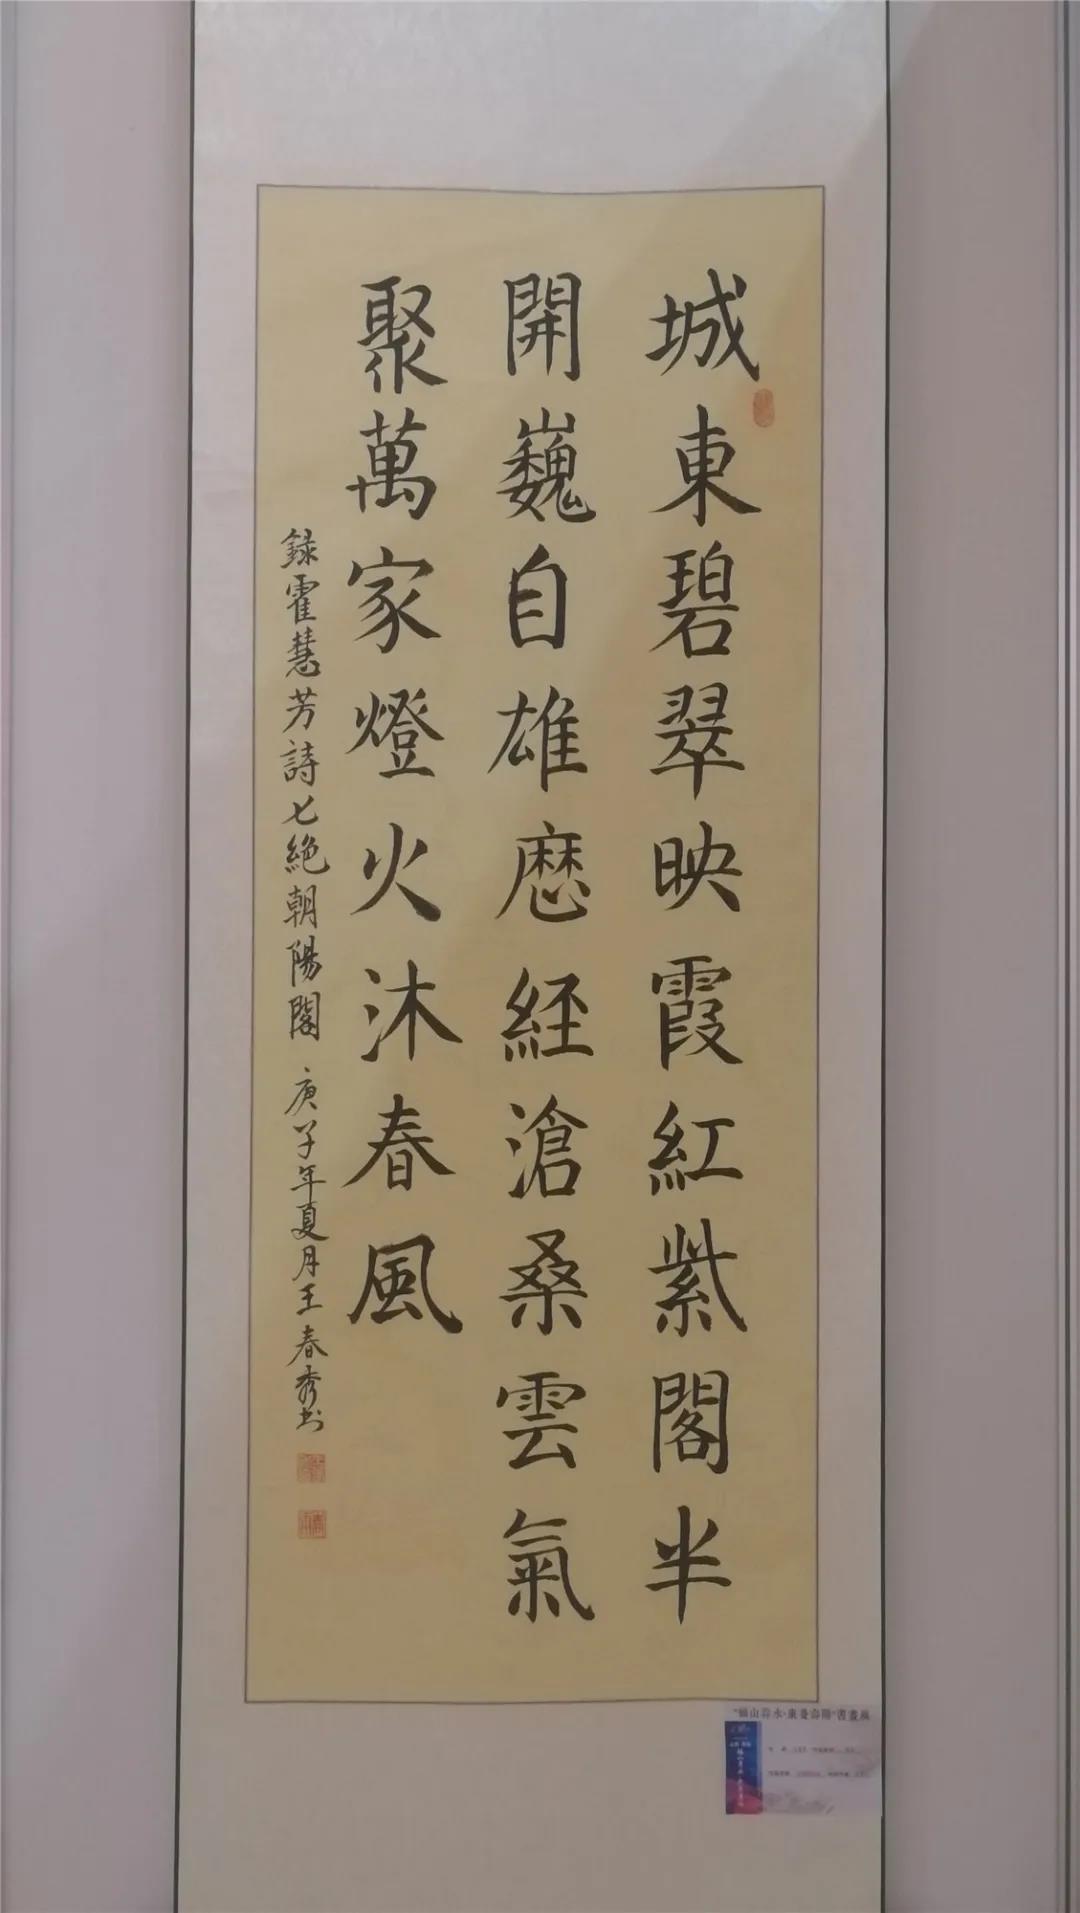 城東碧翠映霞紅紫閣半
開巍自雄歷經滄桑雲氣
聚萬家燈火沐春風
錄霍慧芳詩七絕朝陽閣 庚子年夏月王春秀书